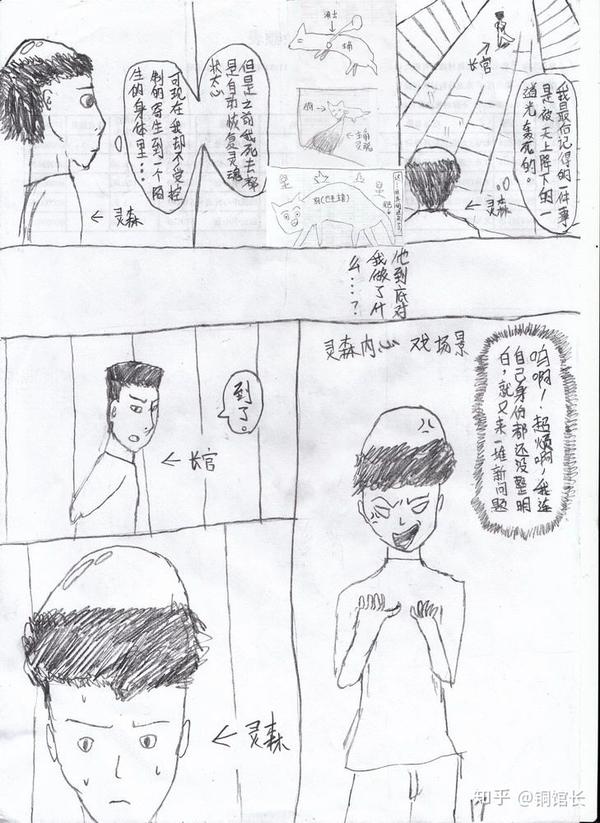 我最后记得的一件事
是被天上降下的一
道光轰死的。
长官
← 灵森
但是之前我死去都
是自动恢复灵魂
状态
可现在我却不受控
制的寄生到一个陌
生的身体里...
← 灵森
他到底对
我做了什
么...?
到了。
← 长官
灵森内心戏场景
呜啊!超烦啊!我连
自己身份都还没整明
白,就又来一堆新问题
← 灵森
知乎 @铜馆长